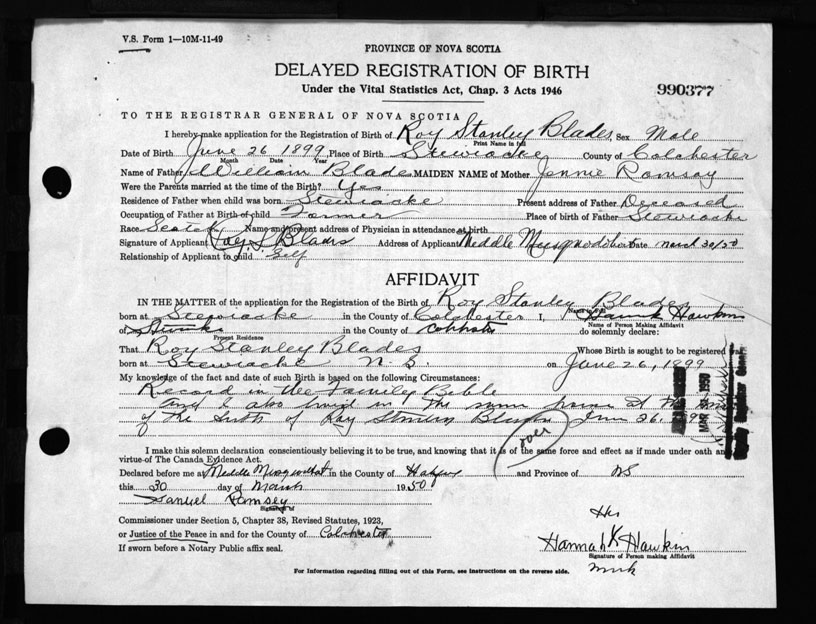 V.S. Form 1—10M-11-49
PROVINCE OF NOVA SCOTIA
DELAYED REGISTRATION OF BIRTH
Under the Vital Statistics Act, Chap. 3 Acts 1946
990377
TO THE REGISTRAR GENERAL OF NOVA SCOTIA
I hereby make application for the Registration of Birth of Roy Stanley Blades, Sex Male
Print Name in full
Date of Birth June 26 1899 Place of Birth Stewiacke County of Colchester
Month Date Year
Name of Father William Blades MAIDEN NAME of Mother Jennie Ramsay
Were the Parents married at the time of the Birth? Yes
Residence of Father when child was born Stewiacke Present address of Father Deceased
Occupation of Father at Birth of child Farmer Place of birth of Father Stewiacke
Race Scotch Name and present address of Physician in attendance at birth
Signature of Applicant Roy S Blades Address of Applicant Middle Musquodoboit Date March 30/50
Relationship of Applicant to child Self
AFFIDAVIT
IN THE MATTER of the application for the Registration of the Birth of Roy Stanley Blades
Name in Full
born at Stewiacke in the County of Colchester I, Hannah Hawkins
Name of Person Making Affidavit
of in the County of Colchester do solemnly declare:
Present Residence
That Roy Stanley Blades Whose Birth is sought to be registered was
born at Stewiacke N. S. on June 26, 1899
My knowledge of the fact and date of such Birth is based on the following Circumstances:
Record in the Family Bible
and I also lived in the same house at the time
of the birth of Roy Stanley Blades June 26, 1899
over
I make this solemn declaration conscientiously believing it to be true, and knowing that it is of the same force and effect as if made under oath and
virtue of The Canada Evidence Act.
Declared before me at Middle Musquodoboit in the County of Halifax and Province of NS
this 30 day of March 1950
Samuel Ramsey
Signature of
Commissioner under Section 5, Chapter 38, Revised Statutes, 1923,
or Justice of the Peace in and for the County of Colchester
If sworn before a Notary Public affix seal.
Her
Hannah X Hawkins
Signature of Person making Affidavit
mark
For Information regarding filling out of this Form, see instructions on the reverse side.